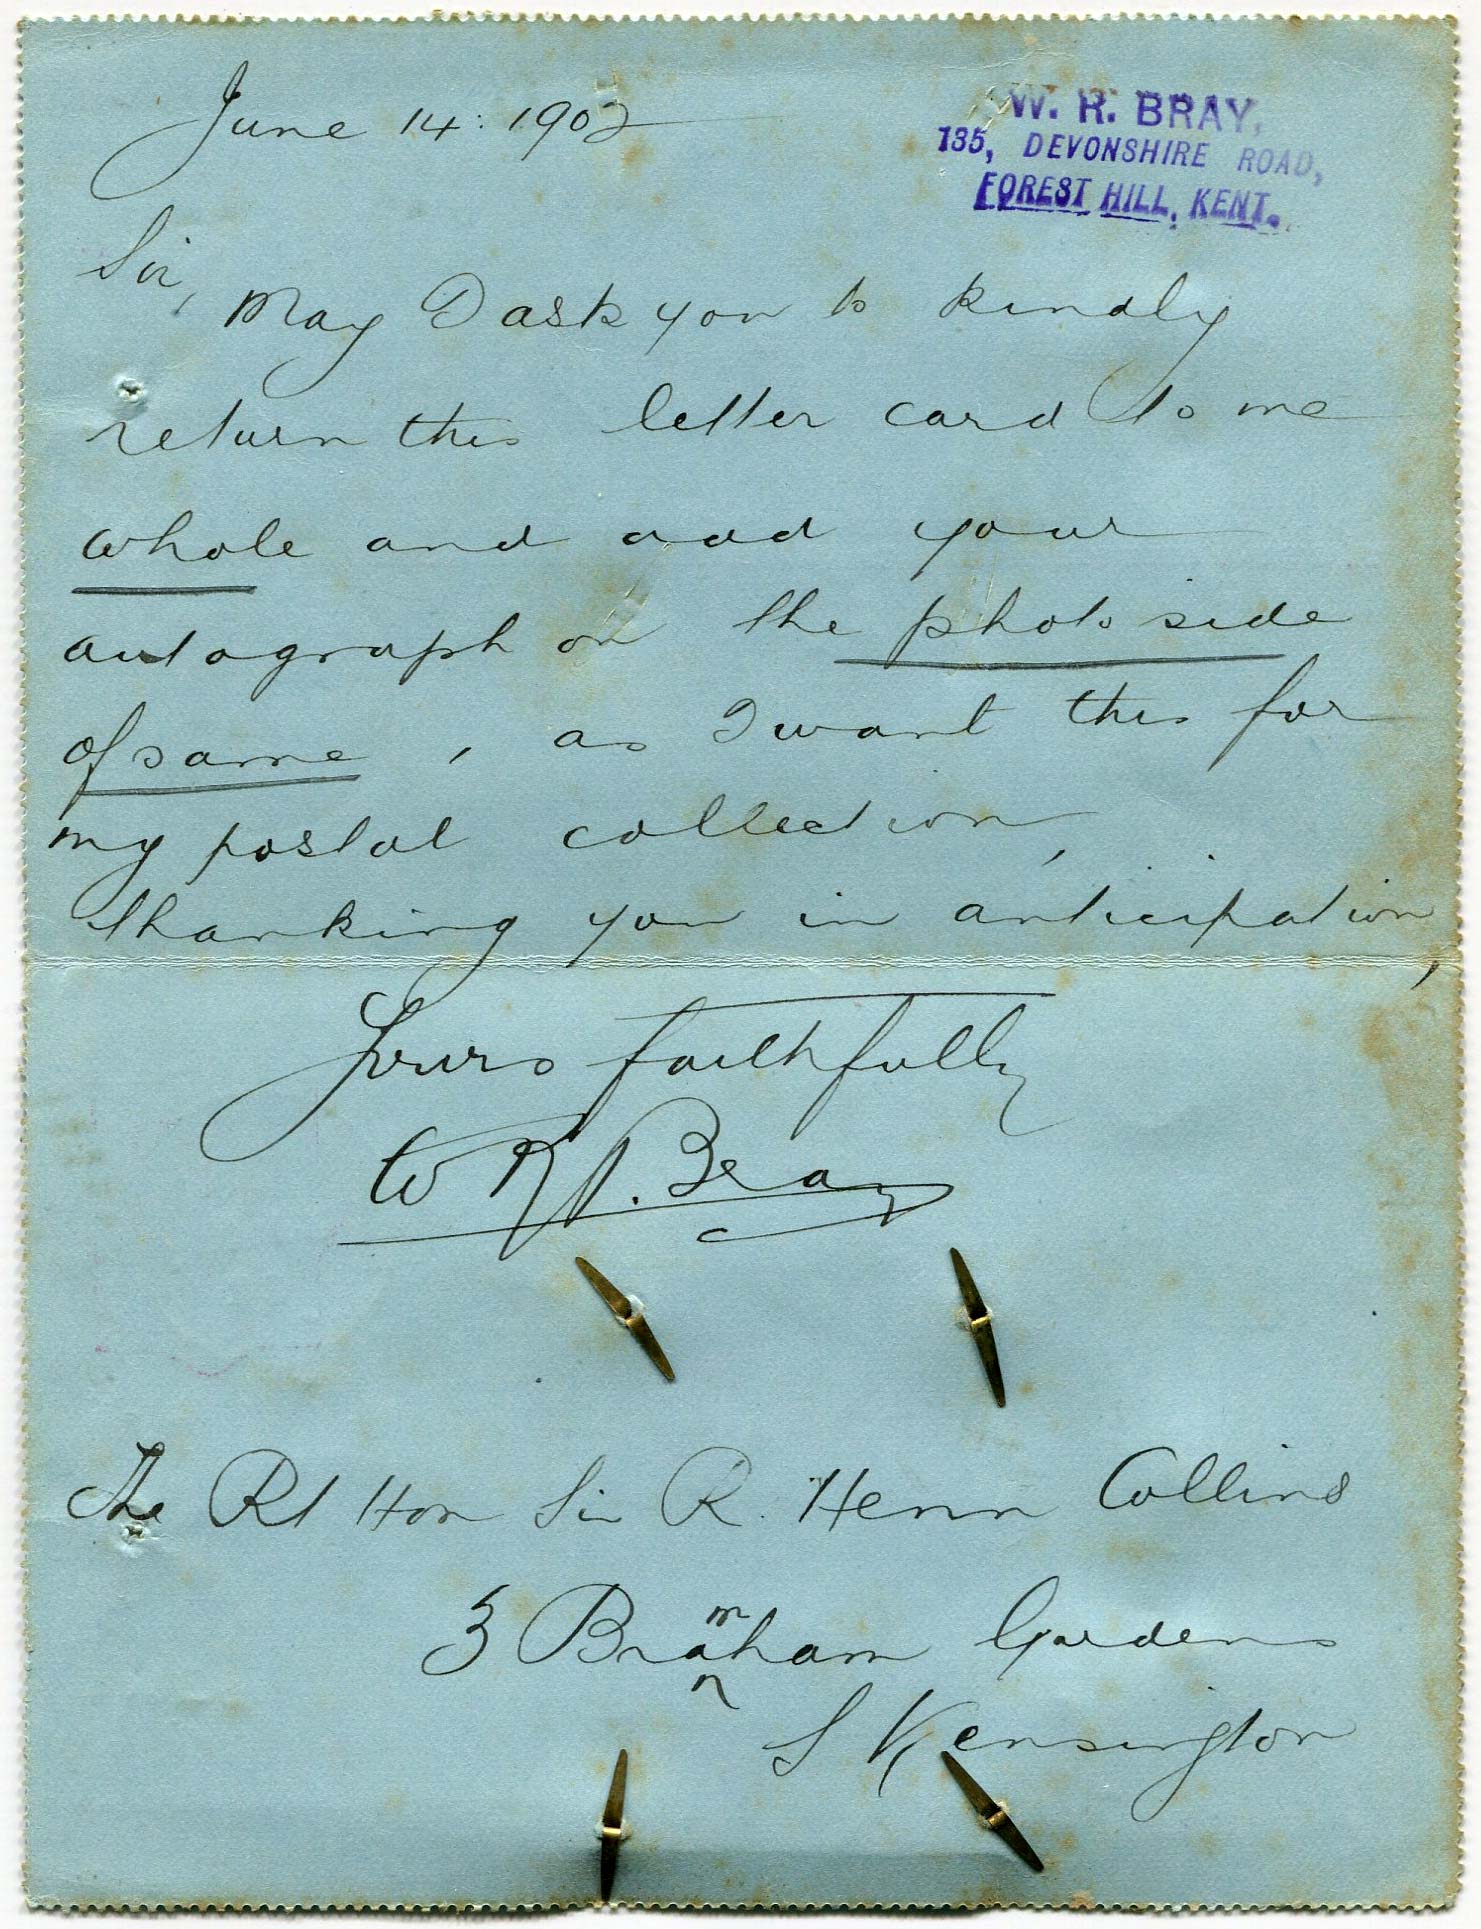 June 14: 1902
W. R. BRAY,
135, DEVONSHIRE ROAD,
FOREST HILL, KENT.
Sir,
May I ask you to kindly
return this letter card to me
whole and add your
autograph on the photo side
of same, as I want this for
my postal collection,
thanking you in anticipation,
Yours faithfully
W R. Bray
The Rt Hon Sir R. Henn Collins
3 Bramham Gardens
S Kensington